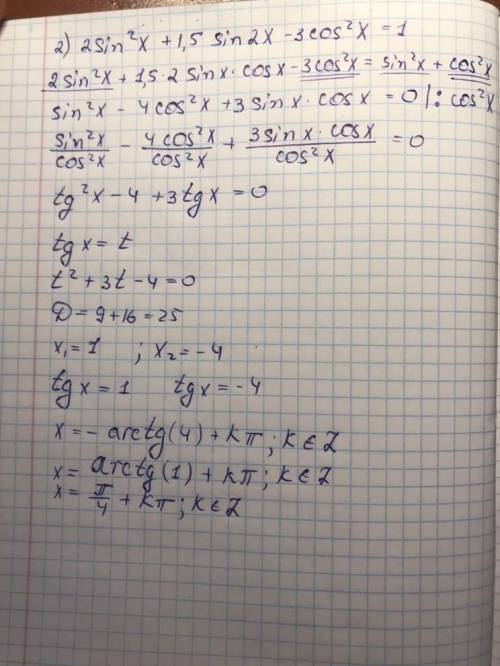 2) 2sin²x + 1,5 sin2x - 3cos²x = 1
2sin²x + 1,5·2sinx·cosx - 3cos²x = sin²x + cos²x
sin²x - 4cos²x + 3sinx·cosx = 0 |: cos²x
sin²x/cos²x - 4cos²x/cos²x + 3sinx·cosx/cos²x = 0
tg²x - 4 + 3tgx = 0
tgx = t
t² + 3t - 4 = 0
D = 9 + 16 = 25
x₁ = 1 ; x₂ = -4
tgx = 1 tgx = -4
x = - arctg(4) + kπ ; k ∈ Z
x = arctg(1) + kπ ; k ∈ Z
x = π/4 + kπ ; k ∈ Z